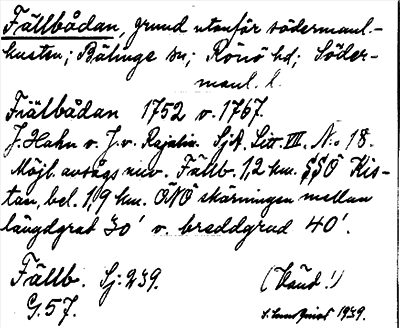 Fällbådan, grund utanför södermanl.-
kusten; Bälinge sn; Rönö hd; Söder-
manl. l.
Fiälbådan 1752 o. 1767.
J. Hahn o. J. v. Rajalin. SjA. Litt. III. N:o 18.
Möjl. avtågs nuv. Fällb. 1,2 km. SSÖ Kis-
tan, bel. 1,9 km. ÖNÖ skärningen mellan
längdgrad 30' o. breddgrad 40'.
Fällb. Sj: 239. (Känd!)
G. 57. 1939.